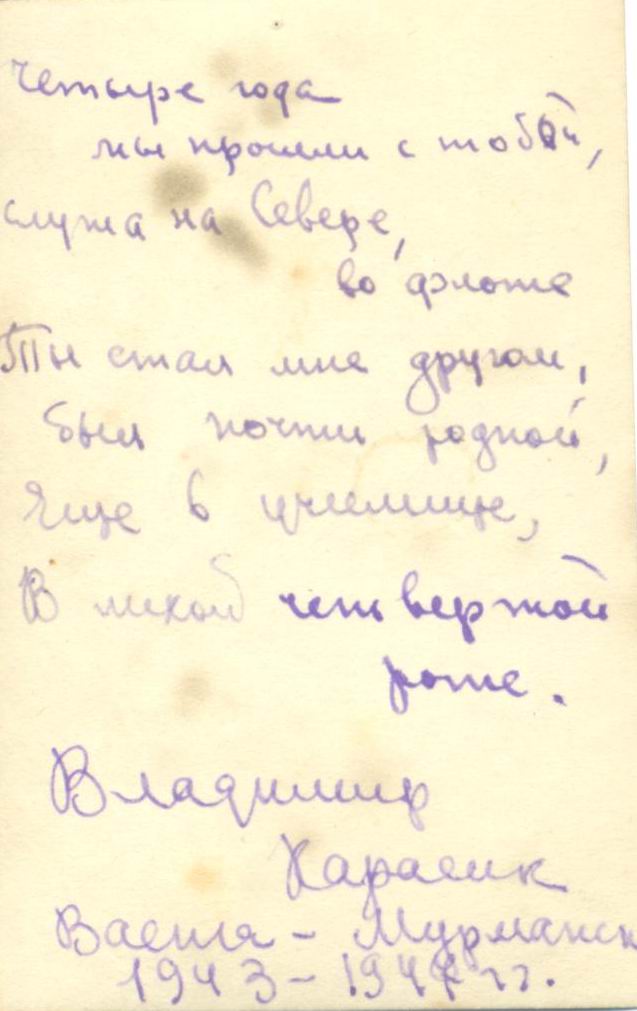 Четыре года
мы прошли с тобой,
служа на Севере,
во флоте
Ты стал мне другом,
был почти родной,
Еще в училище,
В лихой четвертой
роте.
Владимир
Карасик
Ваенга - Мурманск
1943 - 1947 гг.